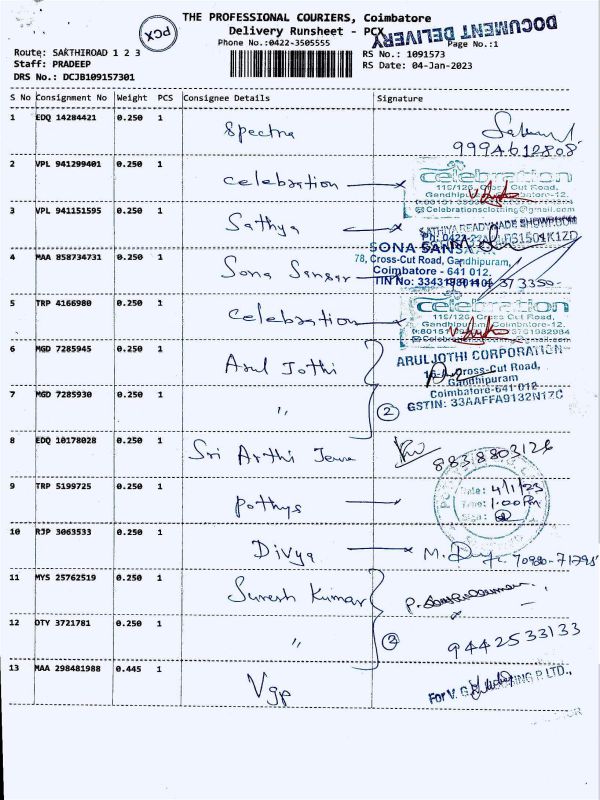 THE PROFESSIONAL COURIERS, Coimbatore
PCX
Delivery Runsheet - PCX
DOCUMENT DELIVERY
Phone No.:0422-3505555
Page No.:1
Route: SAKTHIROAD 1 2 3
RS No.: 1091573
Staff: PRADEEP
RS Date: 04-Jan-2023
DRS No.: DCJB109157301
S No Consignment No Weight PCS Consignee Details Signature
1 EDQ 14284421 0.250 1 Spectra
9994612808
2 VPL 941299401 0.250 1 Celebration
celebration
119/126, Cross Cut Road,
Gandhipuram, Coimbatore-12.
Celebrationsclothing@gmail.com
3 VPL 941151595 0.250 1 Sathya
SATHYA READYMADE SHOWROOM
4 MAA 858734731 0.250 1 Sona Sansar
SONA SANSAR
78, Cross-Cut Road, Gandhipuram,
Coimbatore - 641 012.
TIN No:
5 TRP 4166980 0.250 1 Celebration
celebration
119/126, Cross Cut Road,
Gandhipuram, Coimbatore-12.
6 MGD 7285945 0.250 1 Arul Jothi
ARULJOTHI CORPORATION
Cross-Cut Road,
Gandhipuram
7 MGD 7285930 0.250 1 "
2
Coimbatore-641 012
GSTIN: 33AAFFA9132N1ZC
8 EDQ 10178028 0.250 1 Sri Arthi Jewa
8838803126
9 TRP 5199725 0.250 1 Pothys
Date: 4/1/23
Time: 1.00 Pm
Sign:
10 RJP 3063533 0.250 1 Divya
M.
11 MYS 25762519 0.250 1 Suresh Kumar
P.
12 OTY 3721781 0.250 1 "
2
9442533133
13 MAA 298481988 0.445 1 Vgp
For V. G. P. P. LTD.,